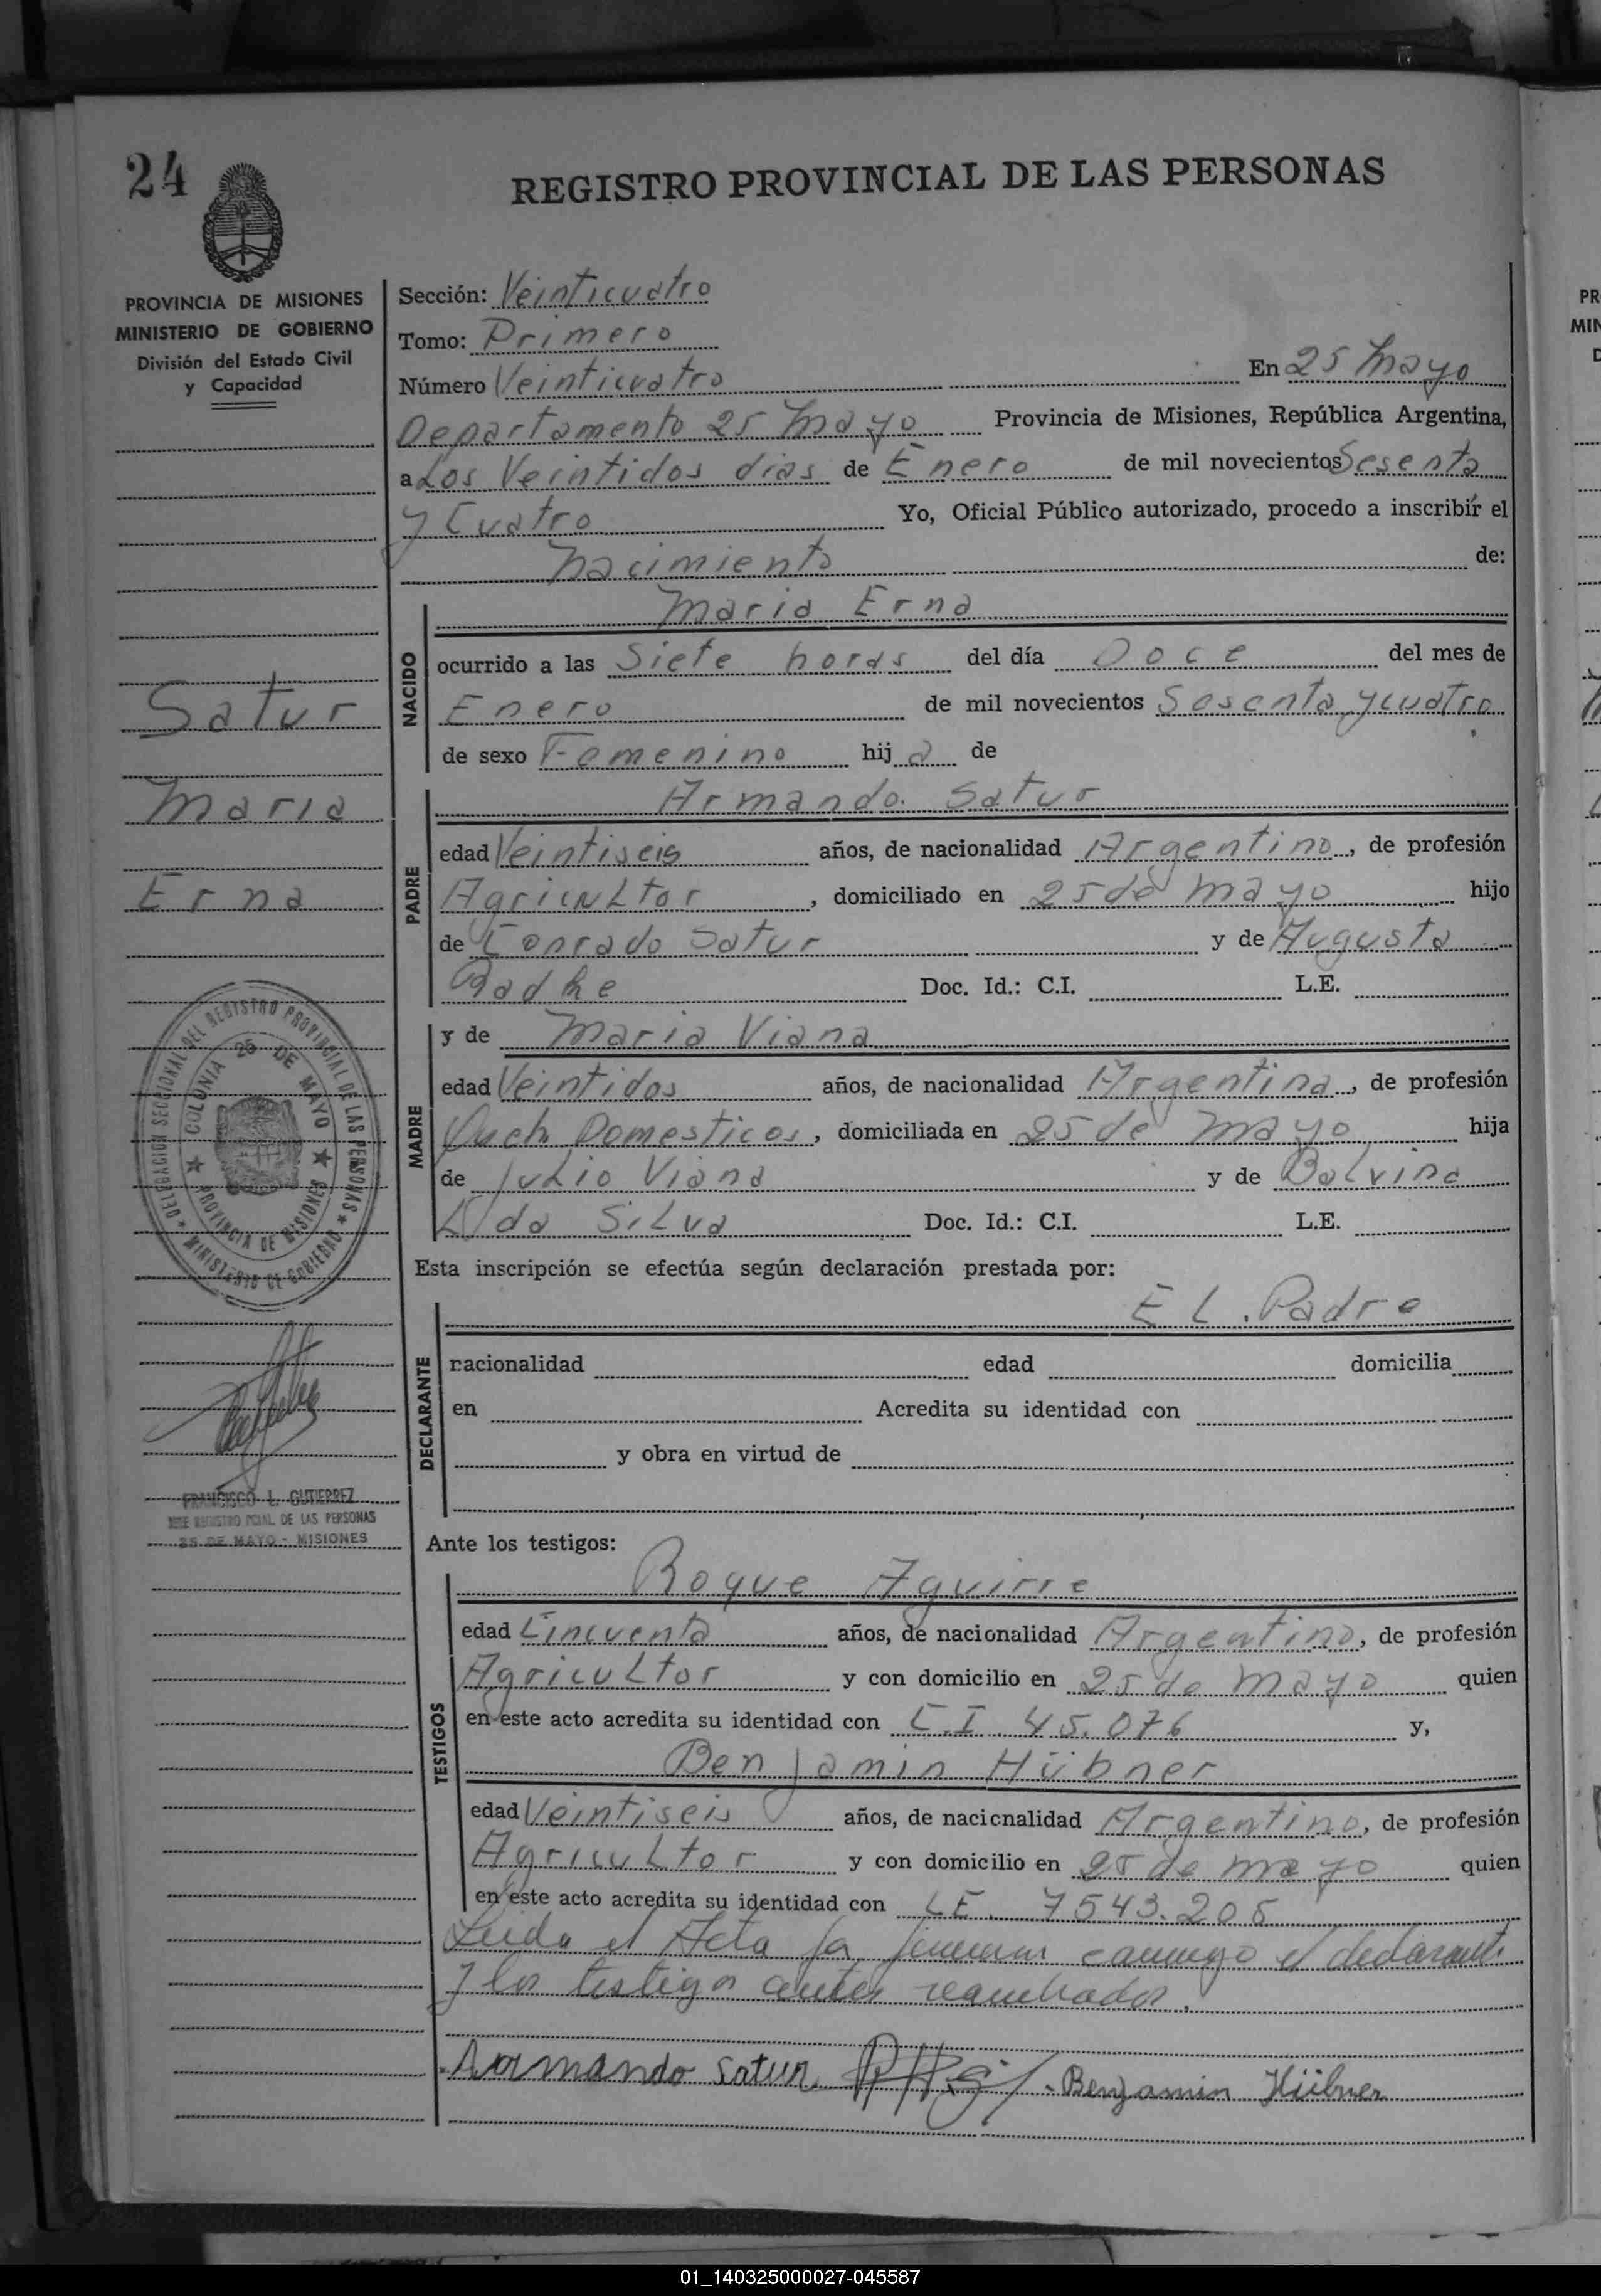 24
REGISTRO PROVINCIAL DE LAS PERSONAS
PROVINCIA DE MISIONES
MINISTERIO DE GOBIERNO
División del Estado Civil
y Capacidad
Satur
Maria
Erna
DELEGACION SECCIONAL DEL REGISTRO PROVINCIAL DE LAS PERSONAS
MINISTERIO DE GOBIERNO
COLONIA 25 DE MAYO
PROVINCIA DE MISIONES
FRANCISCO L. GUTIERREZ
JEFE REGISTRO PCIAL. DE LAS PERSONAS
25 DE MAYO - MISIONES
Sección: Veinticuatro
Tomo: Primero
Número Veinticuatro En 25 Mayo
Departamento 25 Mayo Provincia de Misiones, República Argentina,
a Los Veintidos dias de Enero de mil novecientos Sesenta
y Cuatro Yo, Oficial Público autorizado, procedo a inscribir el
Nacimiento de:
NACIDO
Maria Erna
ocurrido a las Siete horas del día Doce del mes de
Enero de mil novecientos Sesenta y cuatro
de sexo Femenino hija de
PADRE
Armando Satur
edad Veintiseis años, de nacionalidad Argentino, de profesión
Agricultor, domiciliado en 25 de Mayo hijo
de Conrado Satur y de Augusta
Radke Doc. Id.: C.I. L.E.
MADRE
y de Maria Viana
edad Veintidos años, de nacionalidad Argentina, de profesión
Domesticos, domiciliada en 25 de Mayo hija
de Julio Viana y de Balvina
da Silva Doc. Id.: C.I. L.E.
Esta inscripción se efectúa según declaración prestada por:
DECLARANTE
EL. Padre
nacionalidad edad domicilia
en Acredita su identidad con
y obra en virtud de
Ante los testigos:
TESTIGOS
Roque Aguirre
edad Cincuenta años, de nacionalidad Argentino, de profesión
Agricultor y con domicilio en 25 de Mayo quien
en este acto acredita su identidad con C.I. 45.076 y,
Benjamin Hübner
edad Veintiseis años, de nacionalidad Argentino, de profesión
Agricultor y con domicilio en 25 de Mayo quien
en este acto acredita su identidad con LE. 7543.205
Leida el Acta la firman conmigo el declarante
y los testigos antes nombrados.
Armando Satur Benjamin Hübner
01_140325000027-045587